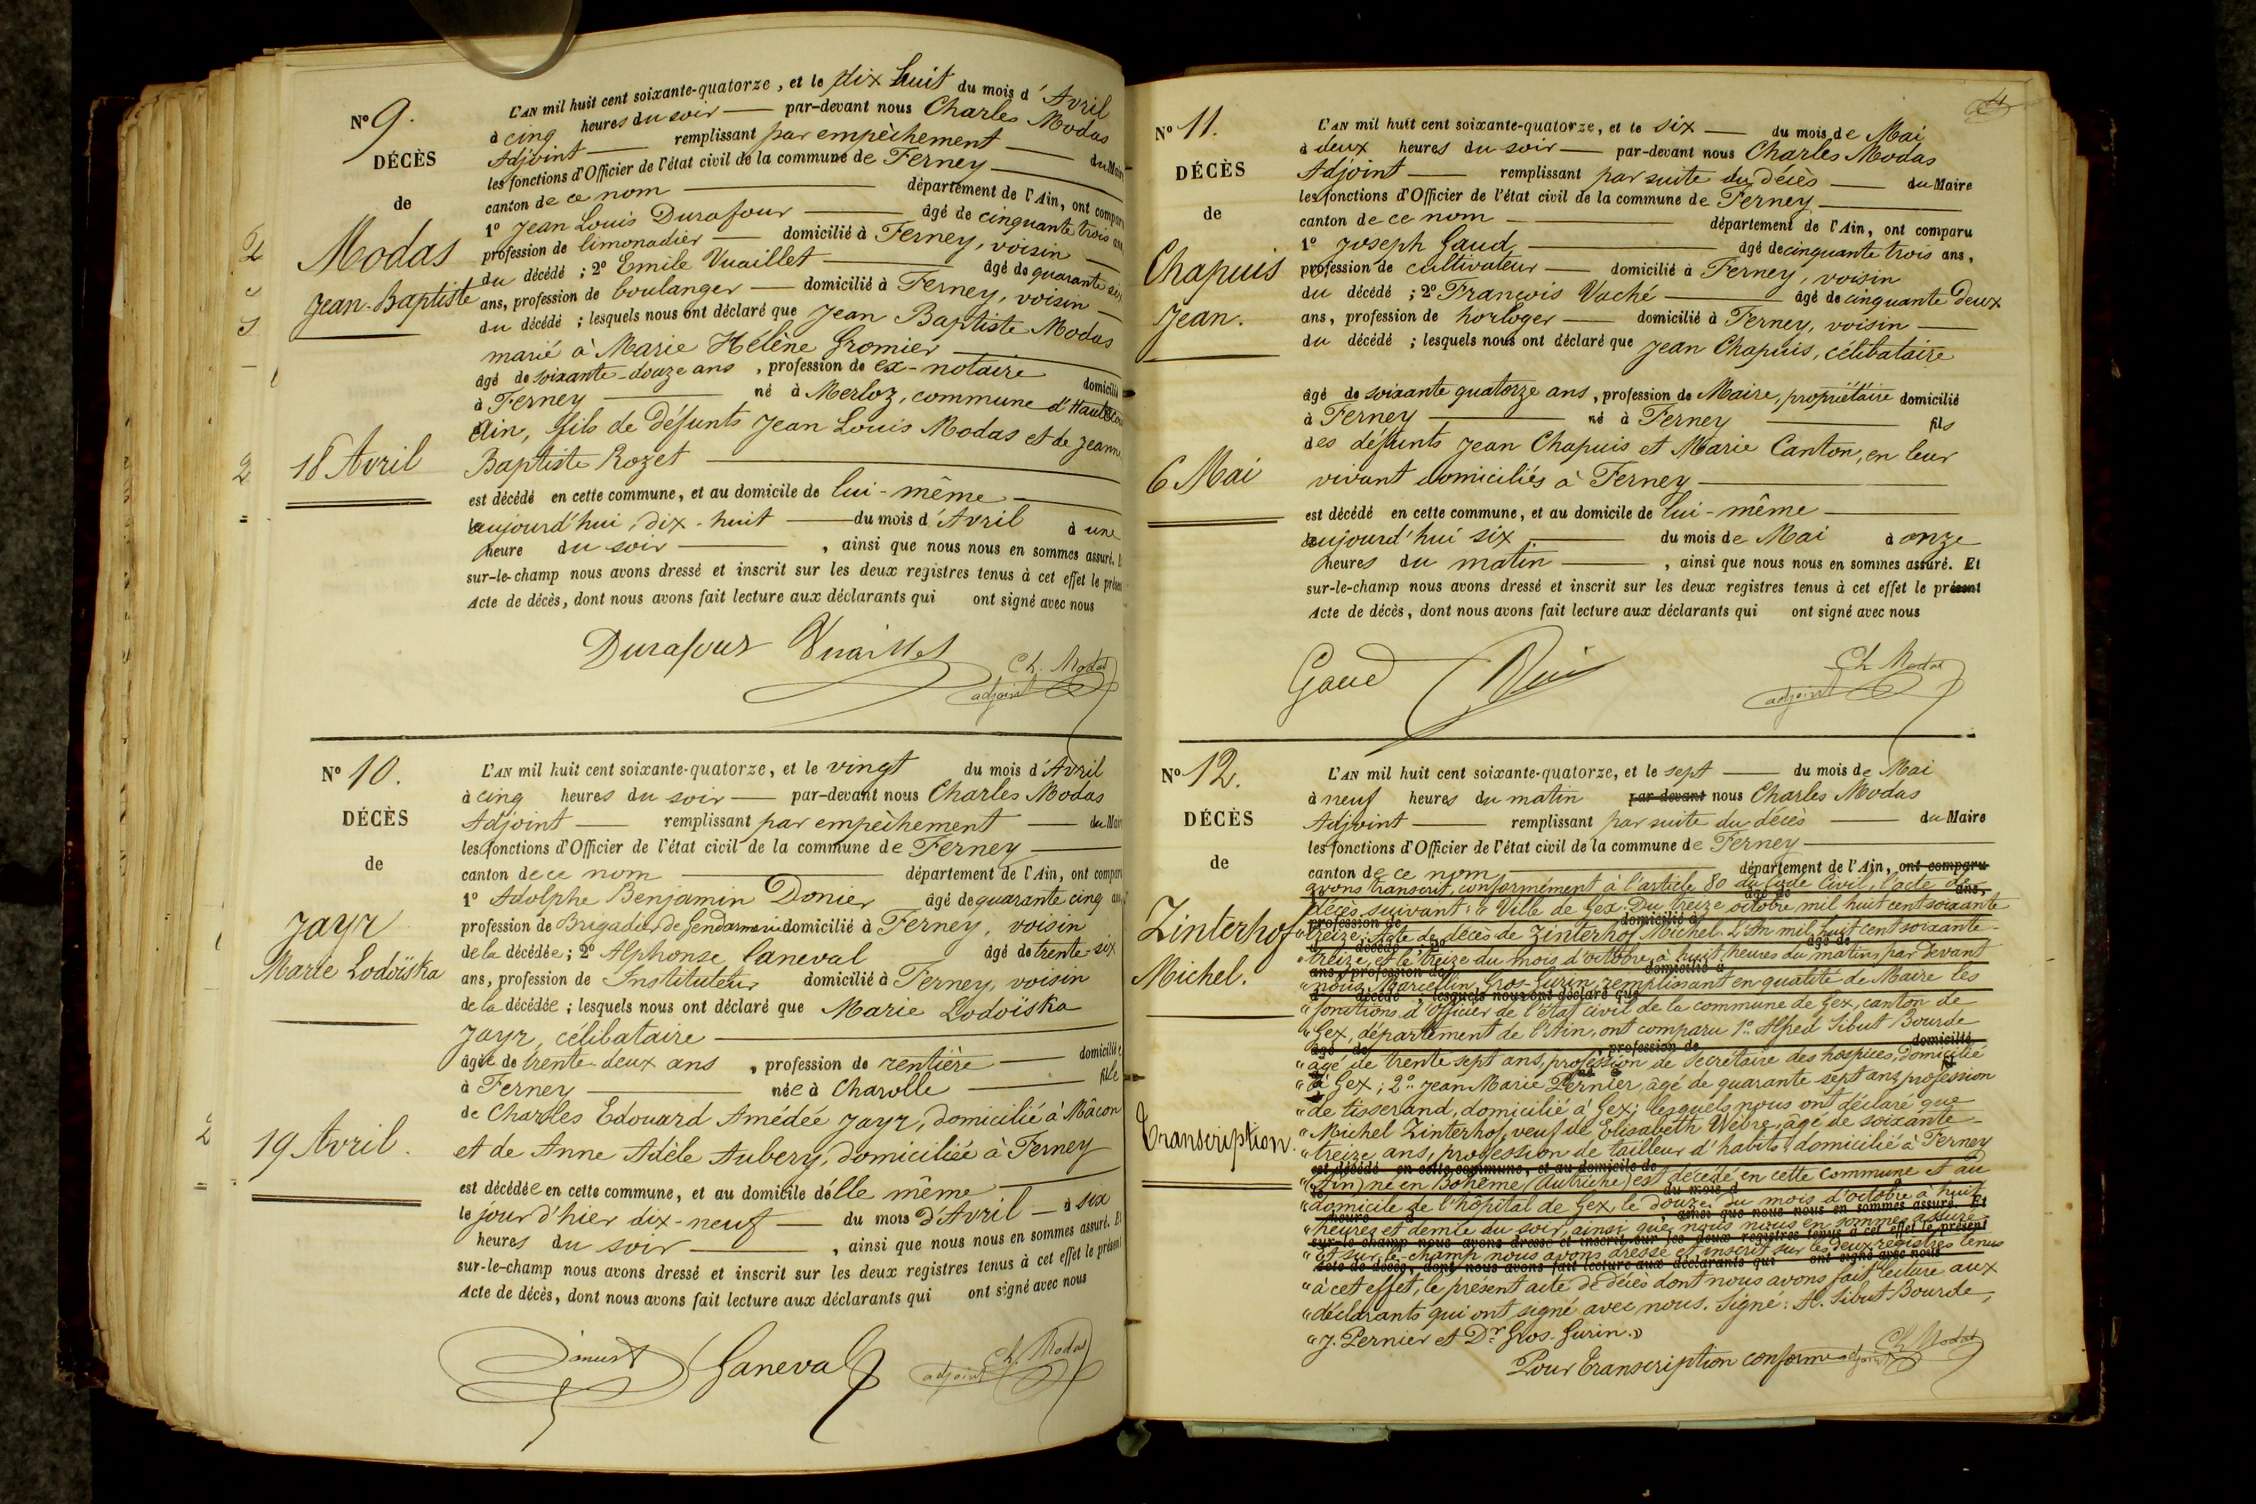 N° 9.
DÉCÈS
de
Modas
Jean-Baptiste
18 Avril
L'AN mil huit cent soixante-quatorze, et le dix huit du mois d'Avril
à cinq heures du soir — par-devant nous Charles Modas
Adjoint — remplissant par empêchement — du Maire
les fonctions d'Officier de l'état civil de la commune de Ferney —
canton de ce nom — département de l'Ain, ont comparu
1° Jean Louis Durafour — âgé de cinquante trois ans
profession de limonadier — domicilié à Ferney, voisin —
du décédé ; 2° Emile Vuaillet — âgé de quarante six
ans, profession de boulanger — domicilié à Ferney, voisin —
du décédé ; lesquels nous ont déclaré que Jean Baptiste Modas
marié à Marie Hélène Gromier —
âgé de soixante-douze ans, profession de ex-notaire domicilié
à Ferney — né à Merloz, commune d'Hautecour
Ain, fils de défunts Jean Louis Modas et de Jeanne
Baptiste Rozet —
est décédé en cette commune, et au domicile de lui-même —
aujourd'hui, dix-huit — du mois d'Avril à une
heure du soir —, ainsi que nous nous en sommes assuré. Et
sur-le-champ nous avons dressé et inscrit sur les deux registres tenus à cet effet le présent
Acte de décès, dont nous avons fait lecture aux déclarants qui ont signé avec nous
Durafour Vuaillet Ch. Modas
adjoint
N° 10.
DÉCÈS
de
Jayr
Marie Lodoïska
19 Avril.
L'AN mil huit cent soixante-quatorze, et le vingt du mois d'Avril
à cinq heures du soir — par-devant nous Charles Modas
Adjoint — remplissant par empêchement — du Maire
les fonctions d'Officier de l'état civil de la commune de Ferney —
canton de ce nom — département de l'Ain, ont comparu
1° Adolphe Benjamin Donier âgé de quarante cinq ans
profession de Brigadier de Gendarmerie domicilié à Ferney, voisin
de la décédée ; 2° Alphonse Ganeval âgé de trente-six
ans, profession de Instituteur domicilié à Ferney, voisin
de la décédée ; lesquels nous ont déclaré que Marie Lodoïska
Jayr, célibataire —
âgée de trente-deux ans, profession de rentière — domiciliée
à Ferney — née à Charolle — fille
de Charles Edouard Amédée Jayr, domicilié à Mâcon
et de Anne Adèle Aubery, domiciliée à Ferney
est décédée en cette commune, et au domicile d'elle même —
le jour d'hier dix-neuf — du mois d'Avril — à six
heures du soir —, ainsi que nous nous en sommes assuré. Et
sur-le-champ nous avons dressé et inscrit sur les deux registres tenus à cet effet le présent
Acte de décès, dont nous avons fait lecture aux déclarants qui ont signé avec nous
Ganeval Ch. Modas
adjoint
N° 11.
DÉCÈS
de
Chapuis
Jean.
6 Mai
L'AN mil huit cent soixante-quatorze, et le six — du mois de Mai
à deux heures du soir — par-devant nous Charles Modas
Adjoint — remplissant par suite du décès — du Maire
les fonctions d'Officier de l'état civil de la commune de Ferney —
canton de ce nom — département de l'Ain, ont comparu
1° Joseph Gaud — âgé de cinquante trois ans,
profession de cultivateur — domicilié à Ferney, voisin
du décédé ; 2° François Vaché — âgé de cinquante deux
ans, profession de horloger — domicilié à Ferney, voisin —
du décédé ; lesquels nous ont déclaré que Jean Chapuis, célibataire
âgé de soixante quatorze ans, profession de Maire, propriétaire domicilié
à Ferney — né à Ferney — fils
des défunts Jean Chapuis et Marie Canton, en leur
vivant domiciliés à Ferney —
est décédé en cette commune, et au domicile de lui-même —
aujourd'hui six — du mois de Mai à onze
heures du matin —, ainsi que nous nous en sommes assuré. Et
sur-le-champ nous avons dressé et inscrit sur les deux registres tenus à cet effet le présent
Acte de décès, dont nous avons fait lecture aux déclarants qui ont signé avec nous
Gaud Ch Modas
adjoint
N° 12.
DÉCÈS
de
Zinterhof
Michel.
Transcription.
L'AN mil huit cent soixante-quatorze, et le sept — du mois de Mai
à neuf heures du matin par-devant nous Charles Modas
Adjoint — remplissant par suite du décès — du Maire
les fonctions d'Officier de l'état civil de la commune de Ferney —
canton de ce nom — département de l'Ain, ont comparu
avons transcrit, conformément à l'article 80 du Code Civil, l'acte de
décès suivant : "Ville de Gex. Du treize octobre mil huit cent soixante
"treize. Acte de décès de Zinterhof Michel. L'an mil huit cent soixante-
"treize, et le treize du mois d'octobre, à huit heures du matin, par devant
"nous, Marcellin Gros-Gurin, remplissant en qualité de Maire les
"fonctions d'officier de l'état civil de la commune de Gex, canton de
"Gex, département de l'Ain, ont comparu 1° Alfred Sibut Bourde
"âgé de trente sept ans, profession de Secrétaire des hospices, domicilié
"à Gex ; 2° Jean Marie Pernier, âgé de quarante sept ans, profession
"de tisserand, domicilié à Gex ; lesquels nous ont déclaré que
"Michel Zinterhof, veuf de Elisabeth Wèbre, âgé de soixante-
"treize ans, profession de tailleur d'habits domicilié à Ferney
"(Ain) né en Bohême (Autriche) est décédé en cette commune et au
"domicile de l'hôpital de Gex, le douze du mois d'octobre à huit
"heures et demie du soir, ainsi que nous nous en sommes assuré
"Et sur-le-champ nous avons dressé et inscrit sur les deux registres tenus
"à cet effet, le présent acte de décès dont nous avons fait lecture aux
"déclarants qui ont signé avec nous. Signé : A. Sibut-Bourde,
"J. Pernier et Dr Gros-Gurin."
Pour transcription conforme Ch Modas
adjoint